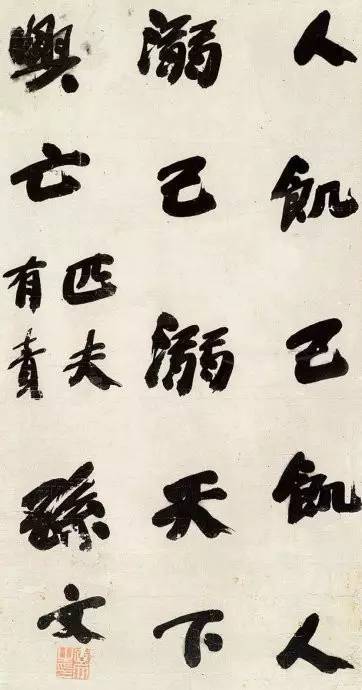 人飢己飢人
溺己溺天下
興亡匹夫
有責孫文